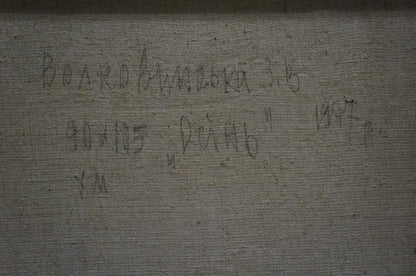 Волковинська З.Б
90х105 „Осінь" 1997 р.
х м